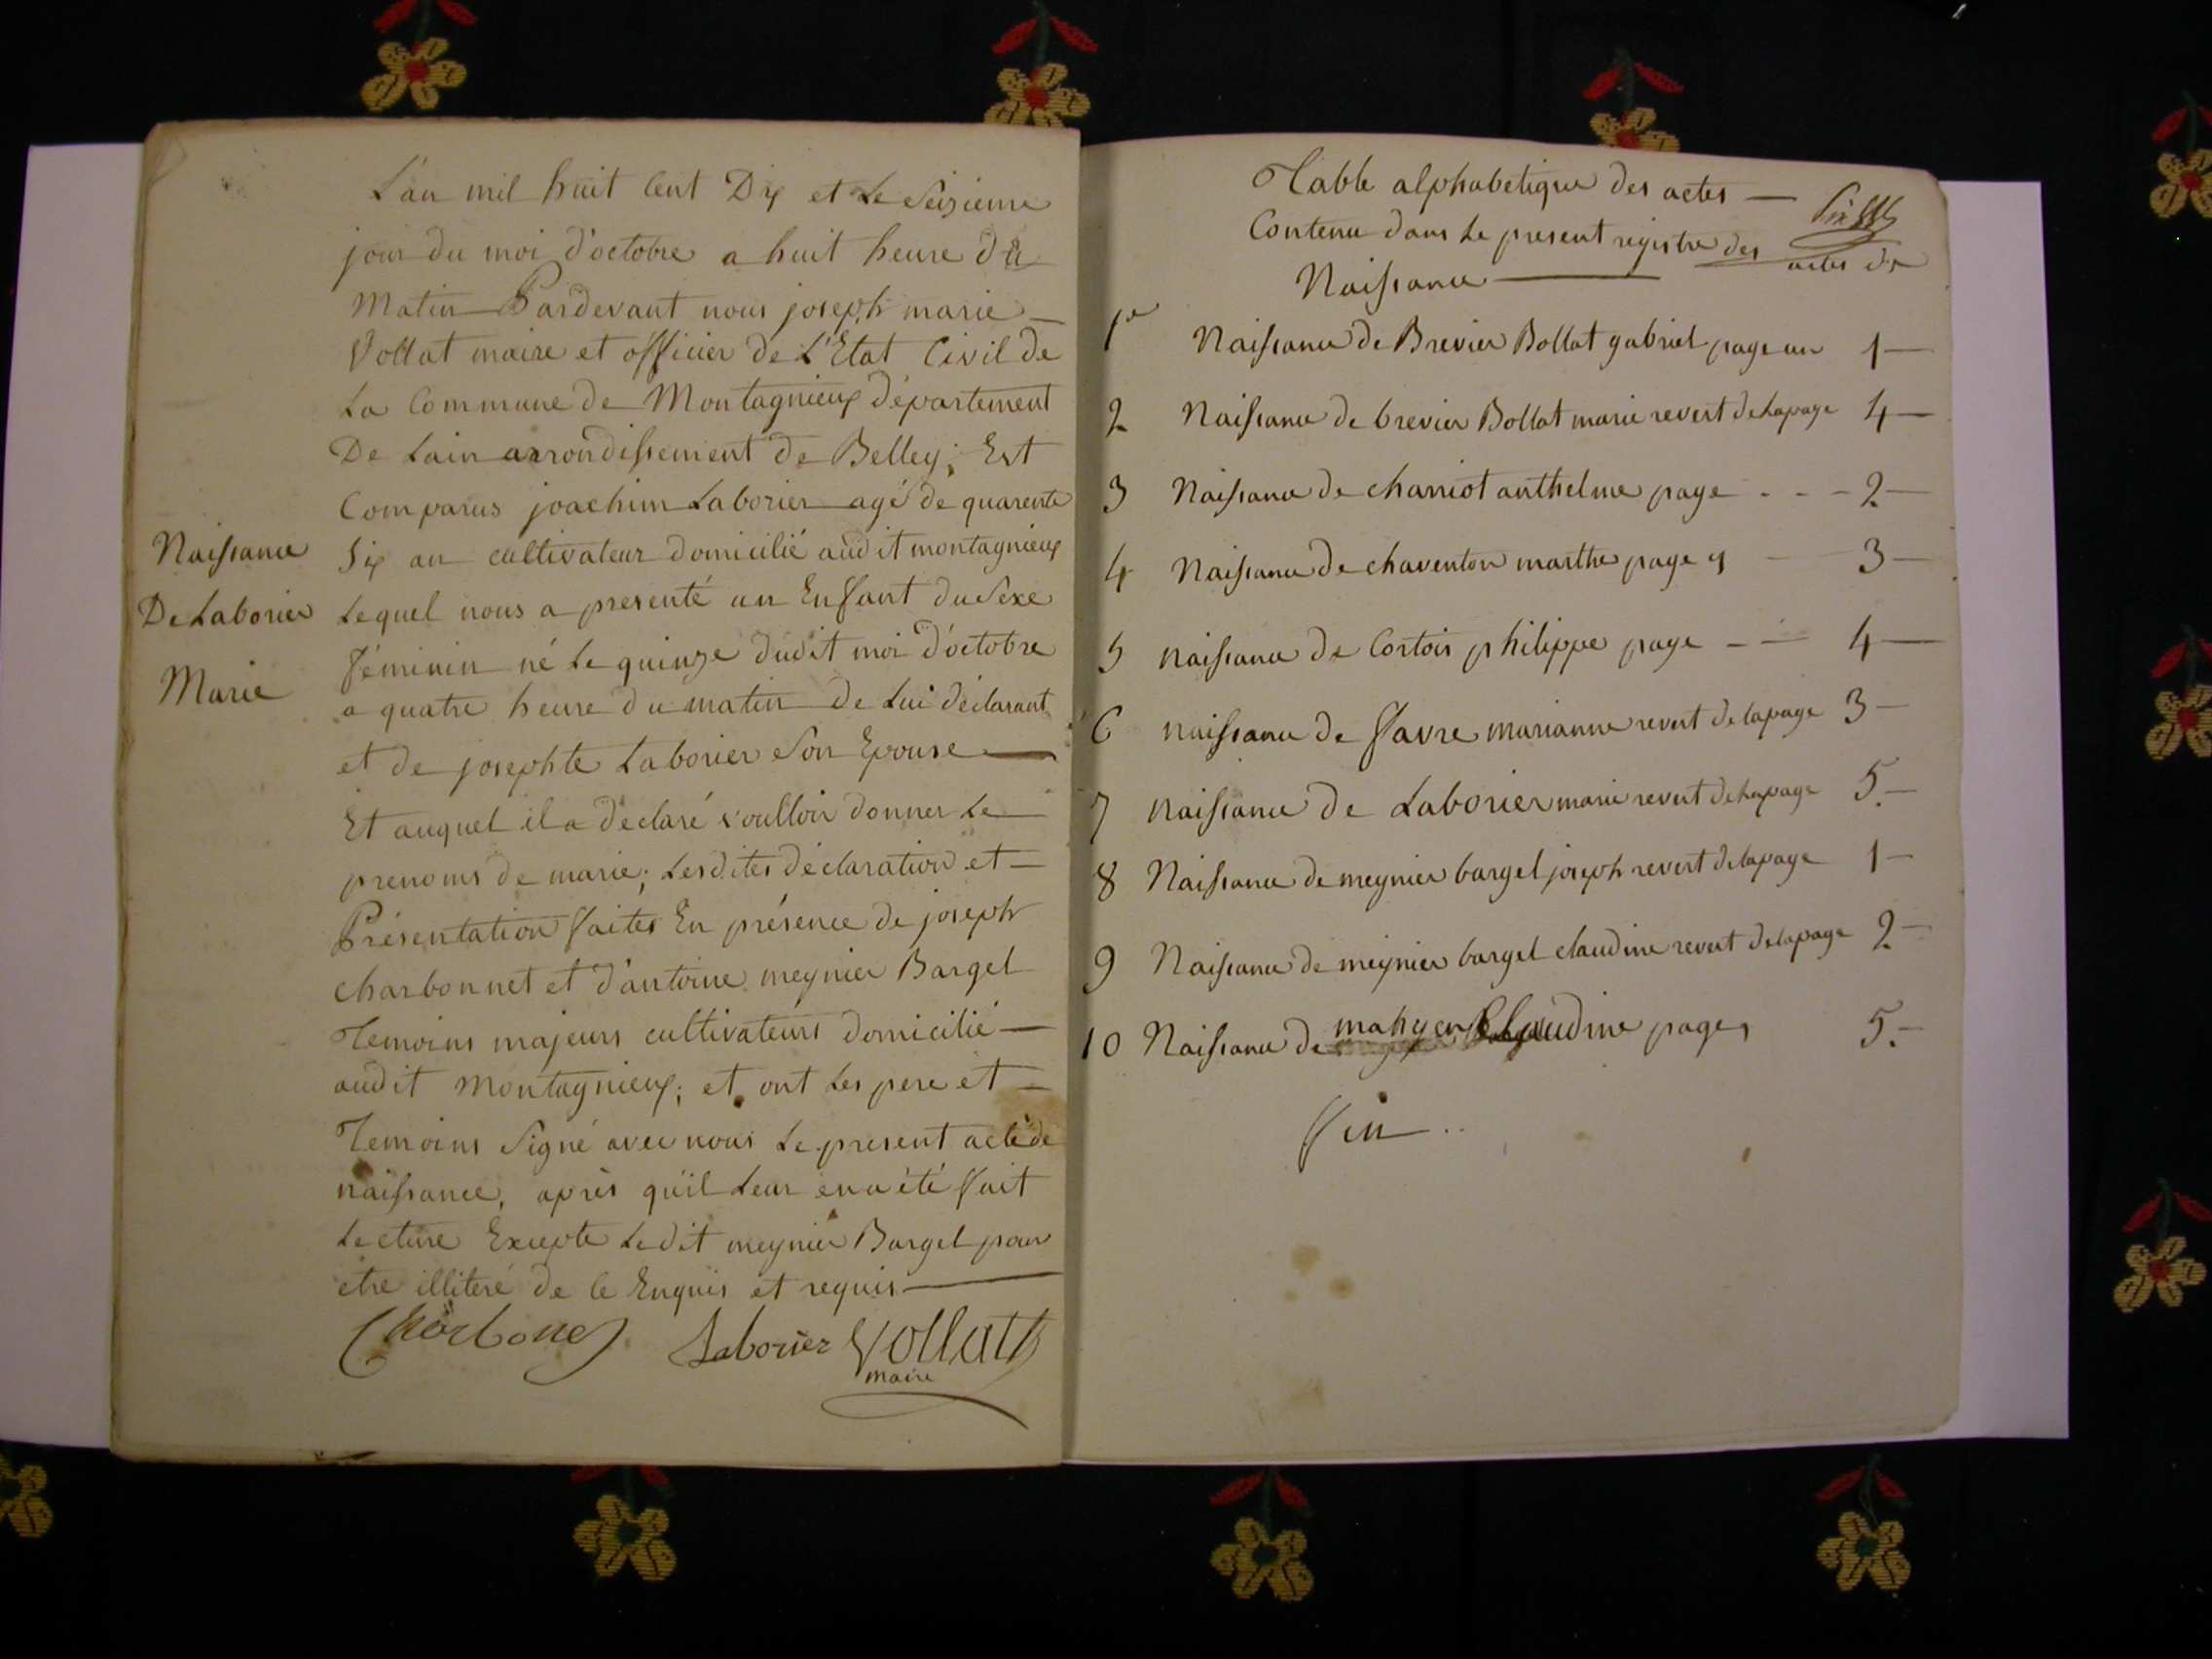 L'an mil huit Cent Dix et Le Seizieme
jour du moi d'octobre a huit heure du
matin Pardevant nous joseph marie
Vollat maire et officier de L'Etat Civil de
La Commune de Montagnieux département
De Lain arrondissement de Belley; Est
Comparus joachim Laborier agé de quarente
Six an cultivateur domicilié audit montagnieux
Lequel nous a presenté un Enfant du Sexe
féminin né le quinze dudit moi d'octobre
a quatre heure du matin de Lui déclarant
et de josephte Laborier Son Epouse
Et auquel il a déclaré voulloir donner Le
prenoms de marie; Lesdites déclaration et
Présentation faites En présence de joseph
charbonnet et d'antoine meynier Bargel
Temoins majeurs cultivateurs domicilié
audit Montagnieux; et ont Les pere et
Temoins Signé avec nous Le present acte de
naissance, après qu'il Leur en a été fait
Lecture Excepte Ledit meynier Bargel pour
etre illiteré de ce Enquis et requis
Charbone Laborier Vollat
maire
Naissance
De Laborier
Marie
Table alphabetique des actes
Contenu dans Le present registre des actes de
Naissance
1er Naissance de Brevier Bollat gabriel page un 1
2 Naissance de brevier Bollat marie revert de Lapage 4
3 Naissance de charriot anthelme page 2
4 Naissance de chaventon marthe page 3
5 naissance de Cortois philippe page 4
6 naissance de favre marianne revert de lapage 3
7 naissance de Laborier marie revert de Lapage 5
8 Naissance de meynier bargel joseph revert de lapage 1
9 Naissance de meynier bargel claudine revert de lapage 2
10 Naissance de Claudine page 5
fin